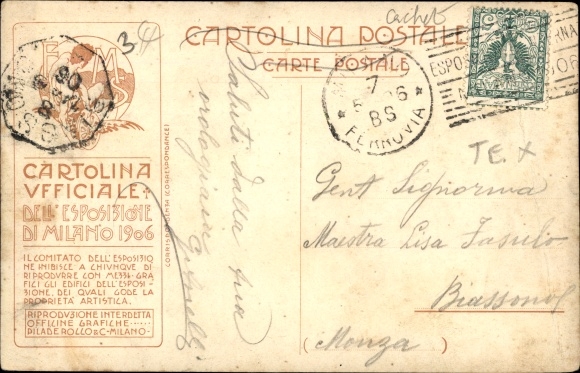 cachet
34
CARTOLINA POSTALE
CARTE POSTALE
E M S
CARTOLINA
VFFICIALE
DELL'ESPOSIZIONE
DI MILANO 1906
IL COMITATO DELL'ESPOSIZIO
NE INIBISCE A CHIVNQVE DI
RIPRODVRRE CON MEZZI GRA
FICI GLI EDIFICI DELL'ESPOSI
ZIONE, DEI QVALI GODE LA
PROPRIETÀ ARTISTICA.
RIPRODVZIONE INTERDETTA
OFFICINE GRAFICHE
PILADE ROCCO & C-MILANO-
CORRISPONDENZA (CORRESPONDANCE)
Saluti dalla sua
orologiaia
7
06
8S
FERROVIA
ESPO
TE. x
Gent Signorina
Maestra Lisa Fasulo
Biassono
(Monza)